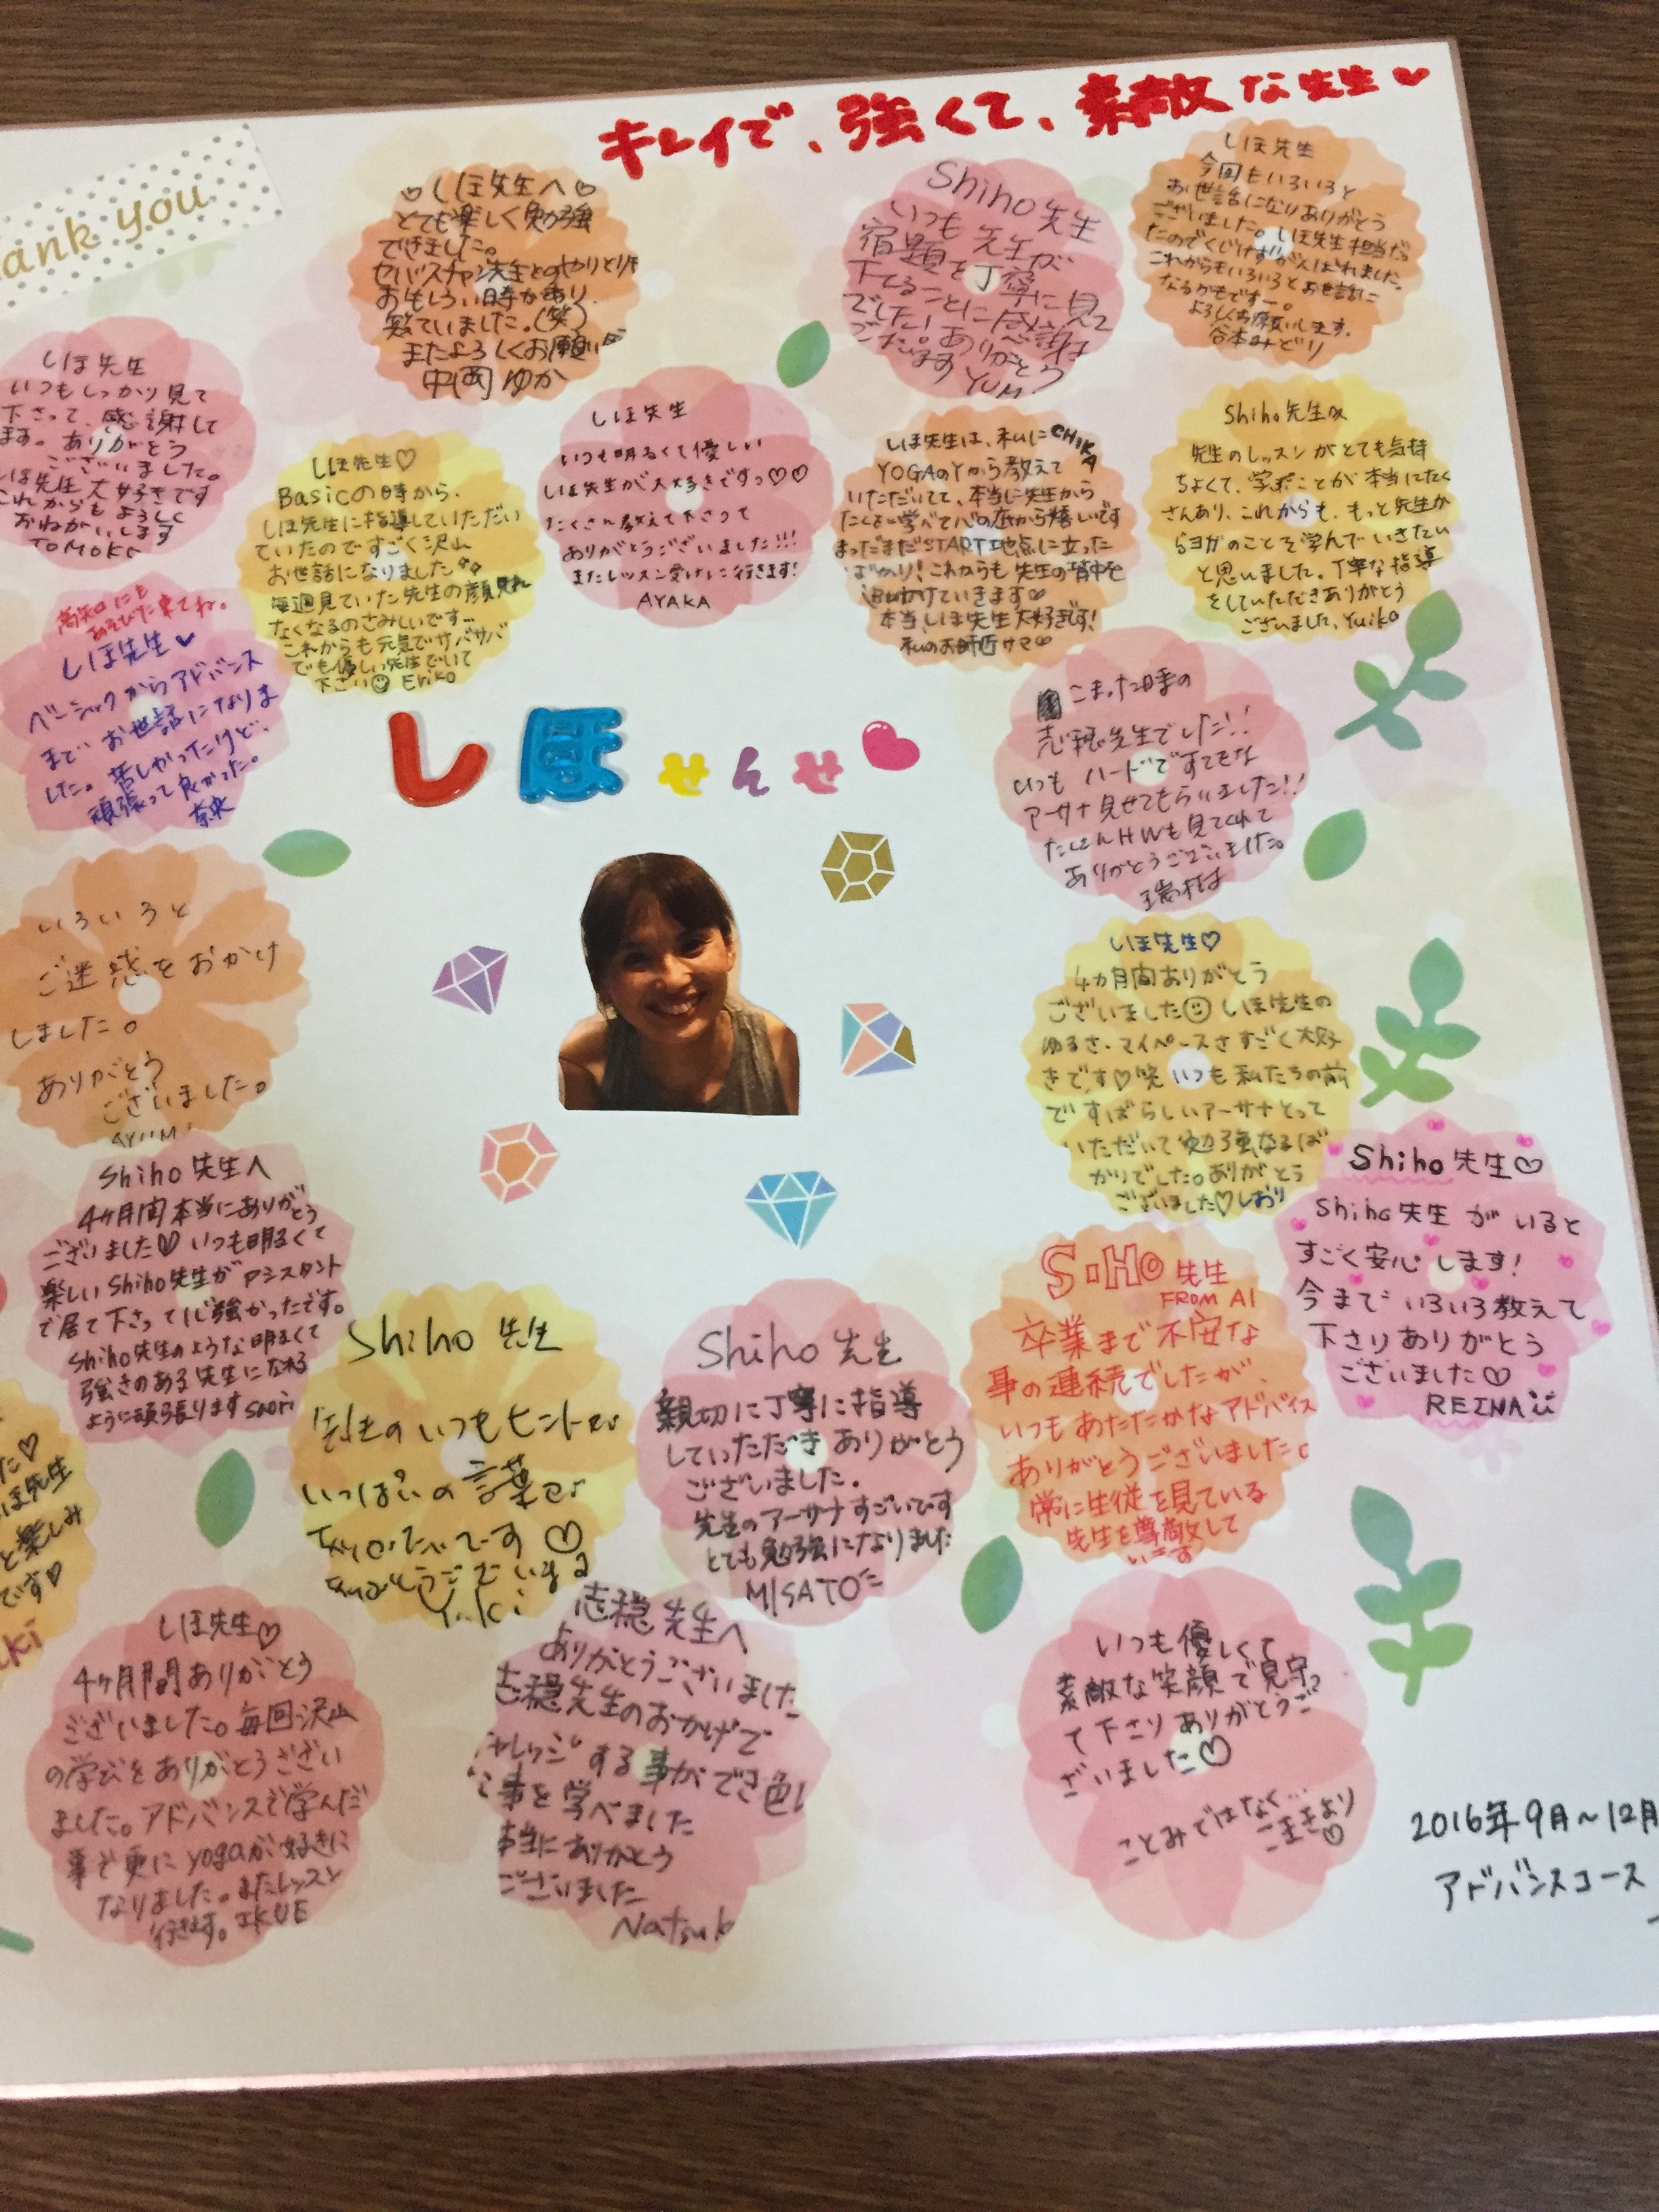 キレイで、強くて、素敵な先生♥
ank you
♡しほ先生へ♡
とても楽しく勉強
できました。
セバスチャン先生とのやりとりが
おもしろい時があり
笑ていました。(笑)
またよろしくお願い
中岡 ゆか
Shiho先生
いつも先生が
宿題を丁寧に見て
下さることに感謝
でした!ありがとう
ございます
YUMI
しほ先生
今回もいろいろと
お世話になりありがとう
ございました。しほ先生担当だっ
たのでくじけずがんばれました。
これからもいろいろとお世話に
なるかもですー。
よろしくお願いします。
谷本みどり
しほ先生
いつもしっかり見て
下さって、感謝して
ます。ありがとう
ございました。
しほ先生大好きです
これからもよろしく
おねがいします
TOMOKO
しほ先生♡
Basicの時から、
しほ先生に指導していただい
ていたのですごく沢山
お世話になりました
毎週見ていた先生の顔見れ
なくなるのさみしいです…
これからも元気でサバサバ
でも優しい先生でいて
下さい☺ Eriko
しほ先生
いつも明るくて優しい
しほ先生が大好きですっ♡♡
たくさん教えて下さって
ありがとうございました!!!
またレッスン受けに行きます!
AYAKA
しほ先生は、私に CHIKA
YOGAのYから教えて
いただいてて、本当に先生から
たくさん学べて心の底から嬉しいです
まっだまだSTART地点に立った
ばかり!これからも先生の背中を
追いかけていきます♡
本当、しほ先生大好きです!
私のお師匠サマ♡
Shiho先生
先生のレッスンがとても気持
ちよくて、学ぶことが本当にたく
さんあり、これからも、もっと先生か
らヨガのことを学んでいきたい
と思いました。丁寧な指導
をしていただきありがとう
ございました。Yuiko
高知にも
あそびに来てね。
しほ先生♥
ベーシックからアドバンス
まで お世話になりま
した。苦しかったけど、
頑張って良かった。
奈央
しほせんせ
こまった時の
志穂先生でした!!
いつも ハードですてきな
アーサナ見せてもらいました!!
たくさんHWも見てくれて
ありがとうございました。
いろいろと
ご迷惑をおかけ
しました。
ありがとう
ございました。
AYUMI
しほ先生♡
4カ月間ありがとう
ございました☺しほ先生の
ゆるさ・マイペースさすごく大好
きです♡笑 いつも私たちの前
ですばらしいアーサナとって
いただいて勉強なるば
かりでした。ありがとう
ございました♡しおり
Shiho先生へ
4ヶ月間本当にありがとう
ございました♡いつも明るくて
楽しいShiho先生がアシスタント
で居て下さって心強かったです。
Shiho先生のような明るくて
強さのある先生になれる
ように頑張りますsaori
Shiho先生♡
Shiho先生がいると
すごく安心します!
今までいろいろ教えて
下さりありがとう
ございました♡
REINA
Shiho 先生
先生のいつもヒントが
いっぱいの言葉が
ありがたいです♡
ありがとうございます
Yuki
Shiho 先生
親切に丁寧に指導
していただきありがとう
ございました.
先生のアーサナすごいです
とても勉強になりました
MISATO
S・HO 先生
FROM AI
卒業まで不安な
事の連続でしたが、
いつもあたたかなアドバイス
ありがとうございました。
常に生徒を見ている
先生を尊敬して
います
た♡
ほ先生
と楽しみ
です♡
ki
しほ先生♡
4ヶ月間ありがとう
ございました。毎回沢山
の学びをありがとうござい
ました。アドバンスで学んだ
事で更にyogaが好きに
なりました。またレッスン
行きます。IKUE
志穏先生へ
ありがとうございました
志穏先生のおかげで
チャレンジする事ができ色
な事を学べました
本当にありがとう
ございました
Natsuk
いつも優しくて
素敵な笑顔で見守っ
て下さりありがとうご
ざいました♡
ことみではなく…
こまきより♡
2016年9月～12月
アドバンスコース